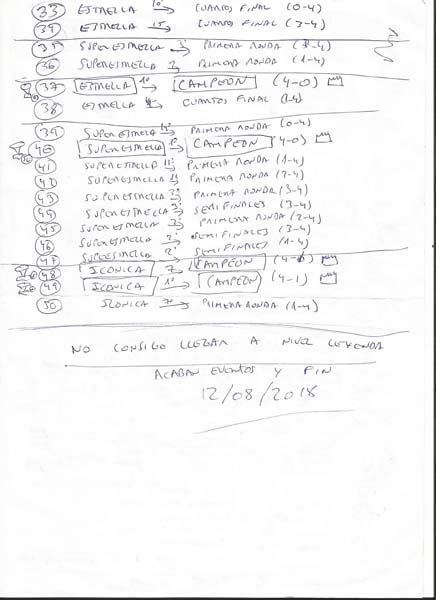 33 ESTRELLA 10º → CUARTOS FINAL (0-4)
34 ESTRELLA 15 → CUARTOS FINAL (3-4)
35 SUPERESTRELLA → PRIMERA RONDA
36 SUPERESTRELLA → PRIMERA RONDA (1-4)
37 ESTRELLA 1º → CAMPEON (4-0)
38 ESTRELLA → CUARTOS FINAL
39 SUPERESTRELLA → PRIMERA RONDA (0-4)
40 SUPERESTRELLA → CAMPEON (4-0)
41 SUPERESTRELLA → PRIMERA RONDA (1-4)
42 SUPERESTRELLA → PRIMERA RONDA
43 SUPERESTRELLA → PRIMERA RONDA (3-4)
44 SUPERESTRELLA → SEMIFINALES (3-4)
45 SUPERESTRELLA → PRIMERA RONDA
46 SUPERESTRELLA → SEMIFINALES (3-4)
47 SUPERESTRELLA → SEMIFINALES (1-4)
48 ICONICA → CAMPEON
49 ICONICA 1º → CAMPEON (4-1)
50 ICONICA → PRIMERA RONDA (1-4)
NO CONSIGO LLEGAR A NIVEL LEYENDA
ACABAN EVENTOS Y FIN
12/08/2018